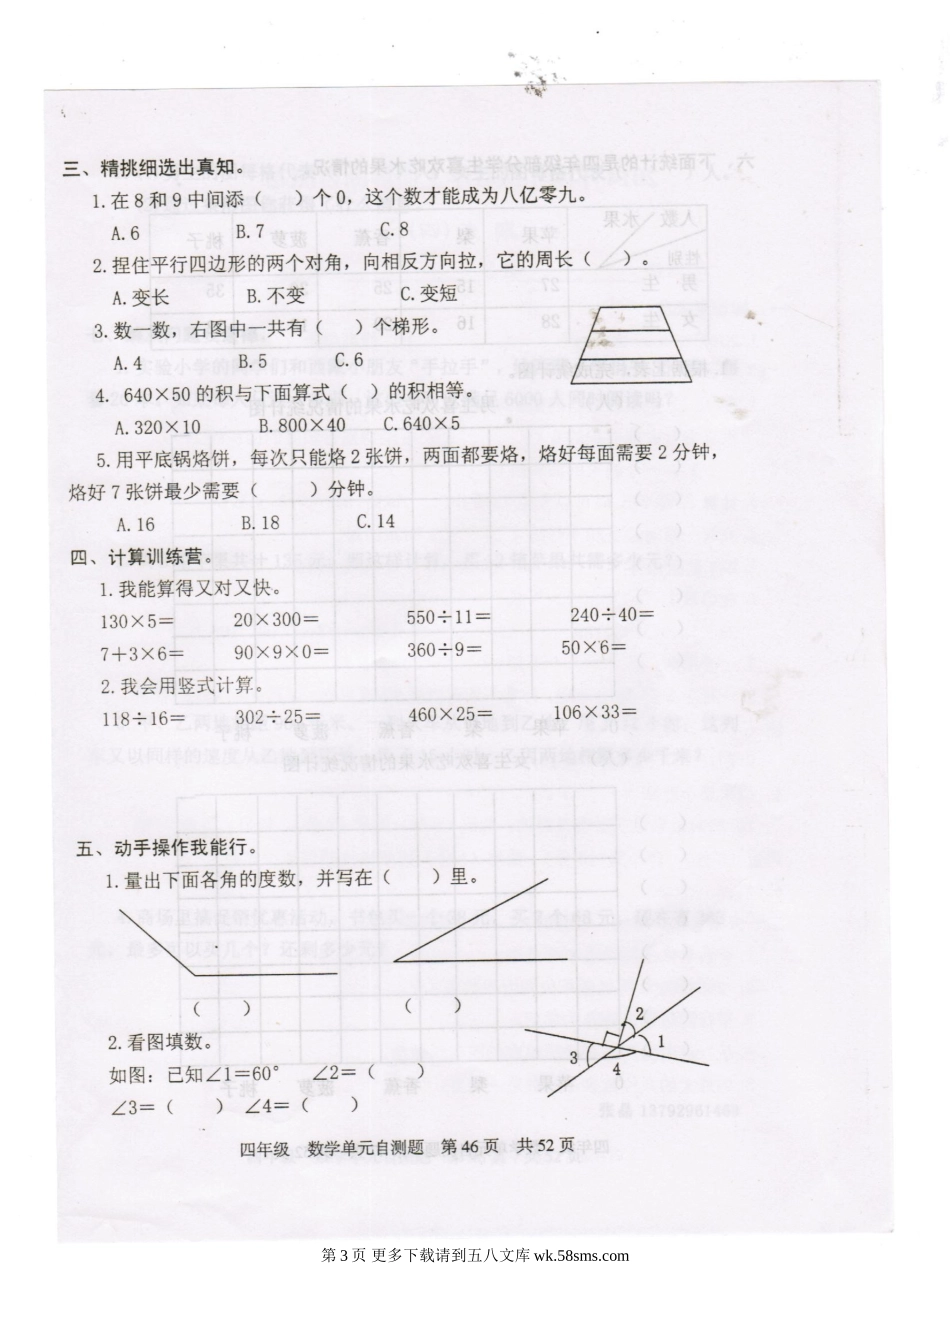 三、精挑细选出真知。
1.在8和9中间添（　　）个0，这个数才能成为八亿零九。
A.6　B.7　C.8
2.捏住平行四边形的两个对角，向相反方向拉，它的周长（　　）。
A.变长　B.不变　C.变短
3.数一数，右图中一共有（　　）个梯形。
A.4　B.5　C.6
4.640×50的积与下面算式（　　）的积相等。
A.320×10　B.800×40　C.640×5
5.用平底锅烙饼，每次只能烙2张饼，两面都要烙，烙好每面需要2分钟，
烙好7张饼最少需要（　　）分钟。
A.16　B.18　C.14
四、计算训练营。
1.我能算得又对又快。
130×5=　20×300=　550÷11=　240÷40=
7+3×6=　90×9×0=　360÷9=　50×6=
2.我会用竖式计算。
118÷16=　302÷25=　460×25=　106×33=
五、动手操作我能行。
1.量出下面各角的度数，并写在（　　）里。
（　　）　（　　）
2.看图填数。
如图：已知∠1=60°　∠2=（　　）
∠3=（　　）∠4=（　　）
2
1
3
4
四年级　数学单元自测题　第46页　共52页
第 3 页 更多下载请到五八文库 wk.58sms.com